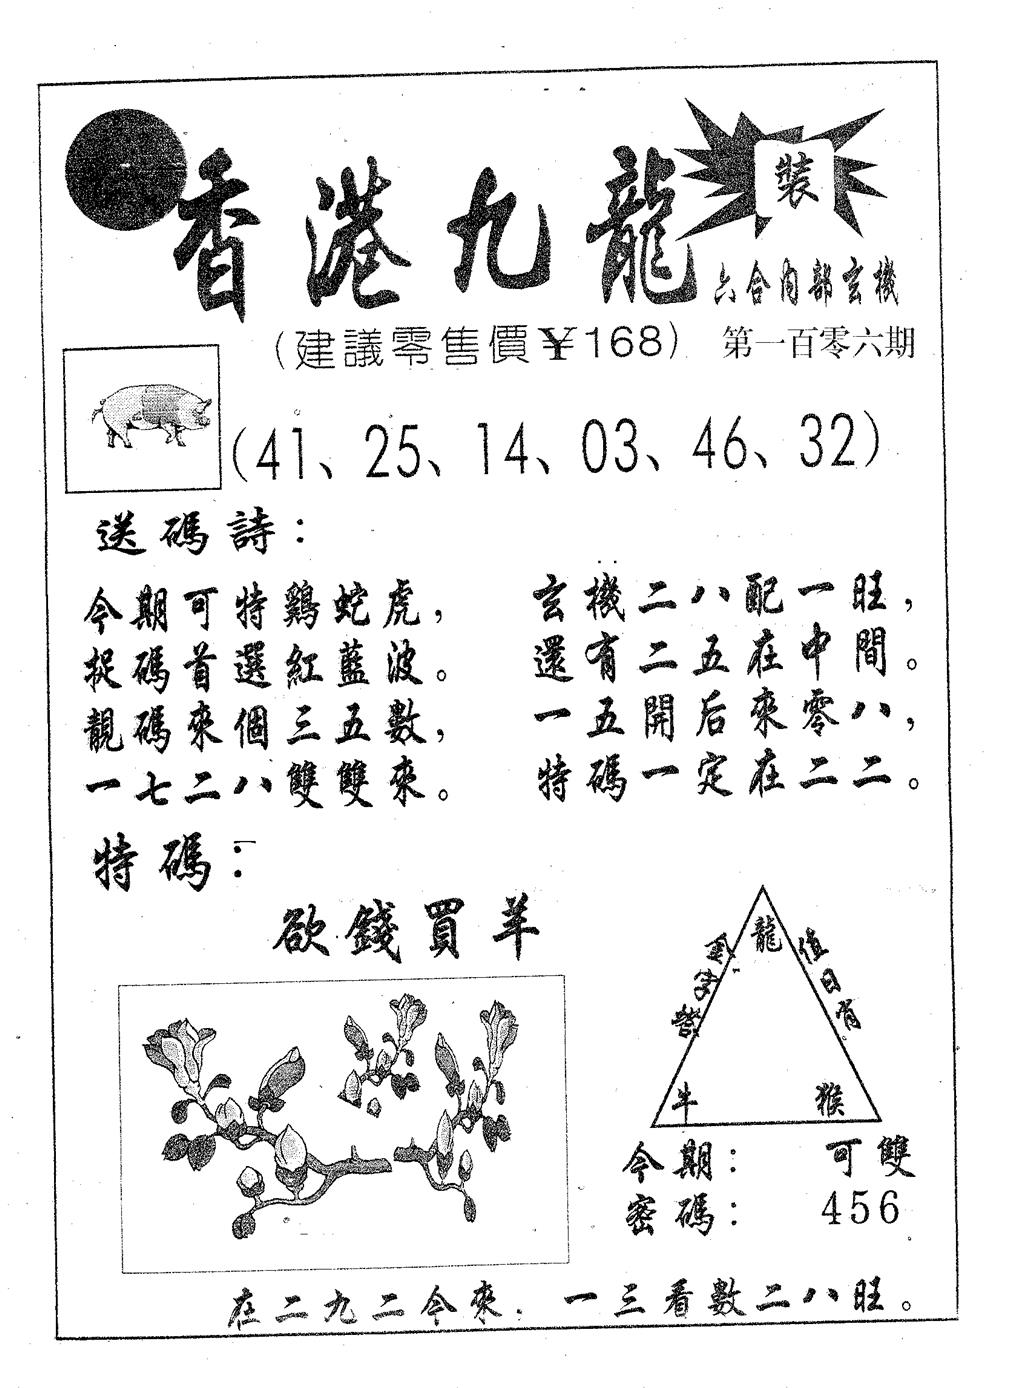 香港九龍
裝
六合內部玄機
(建議零售價¥168) 第一百零六期
(41、25、14、03、46、32)
送碼詩：
今期可特鷄蛇虎， 玄機二八配一旺，
捉碼首選紅藍波。 還有二五在中間。
靚碼來個三五數， 一五開后來零八，
一七二八雙雙來。 特碼一定在二二。
特碼：
欲錢買羊
龍
值日肖
牛 猴
今期： 可雙
密碼： 456
在二九二今來．一三看數二八旺。